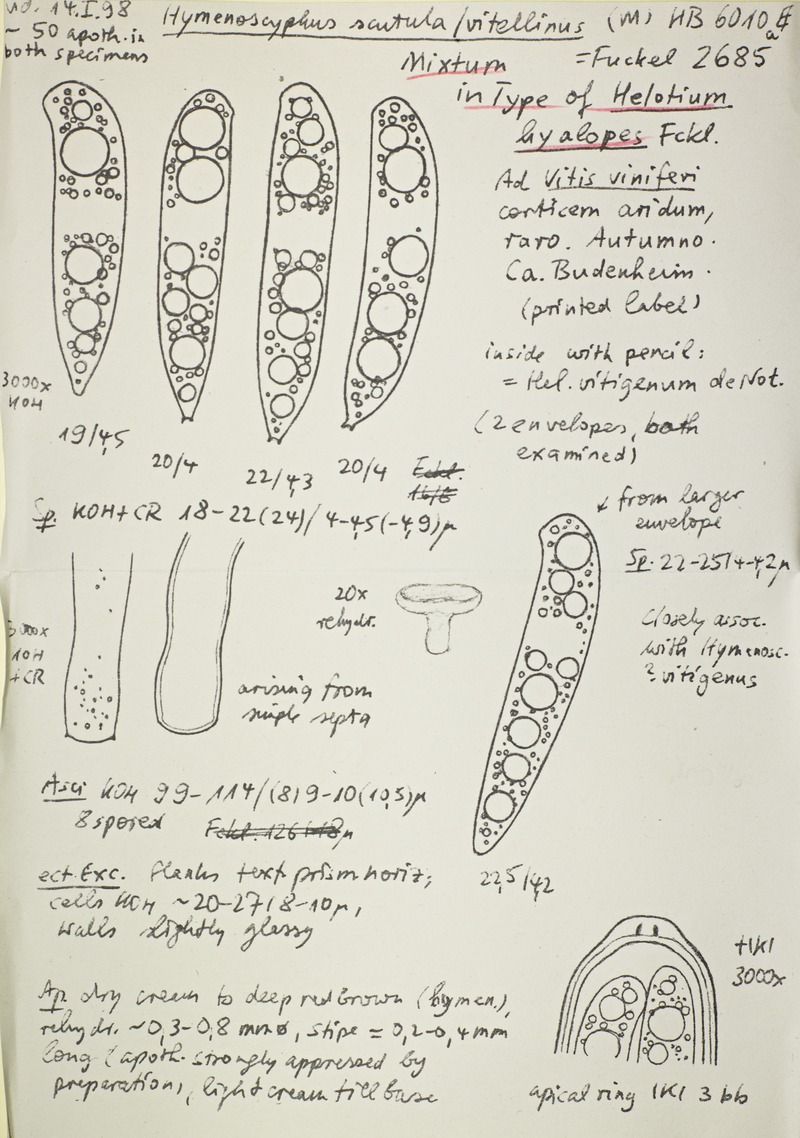 14.I.98
~ 50 apoth. in
both specimens
Hymenoscyphus scutula/vitellinus (M) HB 6010a
Mixtum = Fuckel 2685
in Type of Helotium
hyalopes Fckl.
Ad Vitis viniferi
corticem aridum,
raro. Autumno.
Ca. Budenheim.
(printed label)
inside with pencil:
= Hel. vitigenum de Not.
(2 envelopes, both
examined)
3000x
KOH
19/4,5
20/4
22/4,3
20/4
Fckl.
16/8
Sp. KOH+CR 18-22(24)/4-4,5(-4,9)µ
from larger
envelope
Sp. 22-25/4-4,2µ
Closely assoc.
with Hymenosc.
? vitigenus
3000x
KOH
+CR
arising from
simple septa
20x
rehydr.
22,5/4,2
Asci KOH 99-114/(8)9-10(10,5)µ
8 spored Fckl. 126/18µ
ect. Exc. flanks text. prism. horiz,
cells KOH ~20-27/8-10µ,
walls slightly glassy
Ap. dry cream to deep redbrown (hymen.),
rehydr. ~0,3-0,8 mm ø, stipe = 0,2-0,4mm
long (apoth. strongly appressed by
preparation), light cream till base
+IKI
3000x
apical ring IKI 3 bb